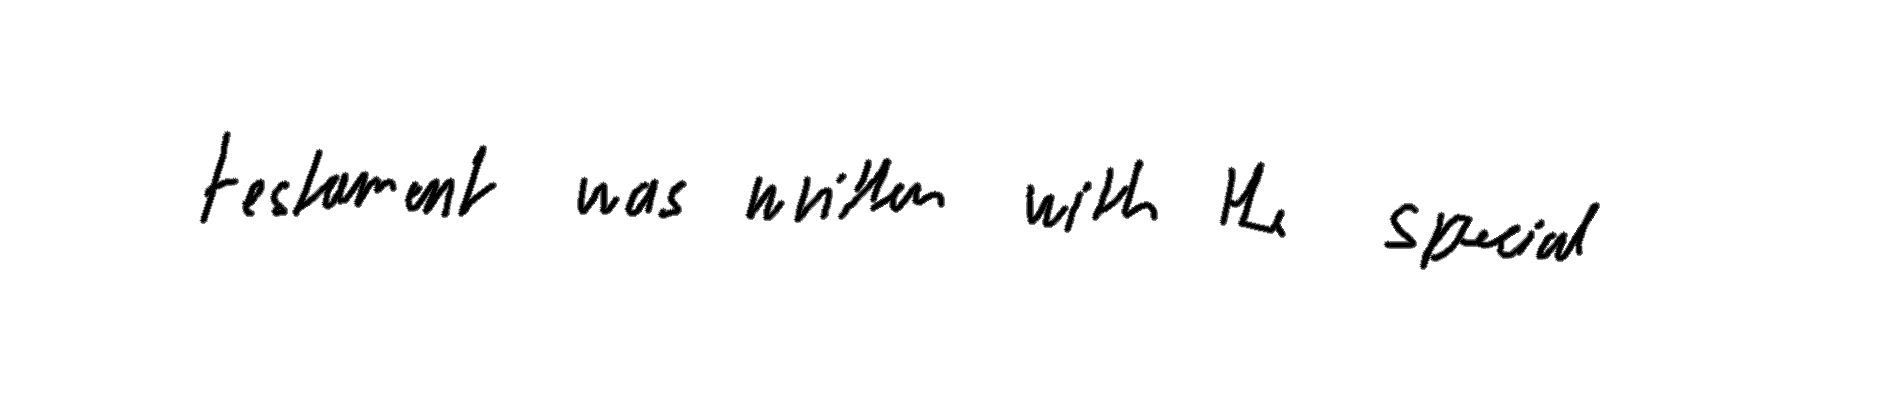 testament was written with the special